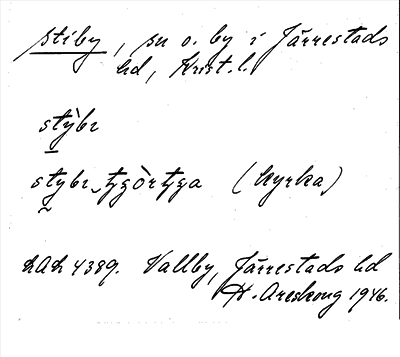 Stiby, sn o. by i Järrestads
hd, Krist.l.
stỳbr
stybr_tzg̀òrtza (kyrka)
LAL 4389. Vallby, Järrestads hd
H. Areskoug 1946.